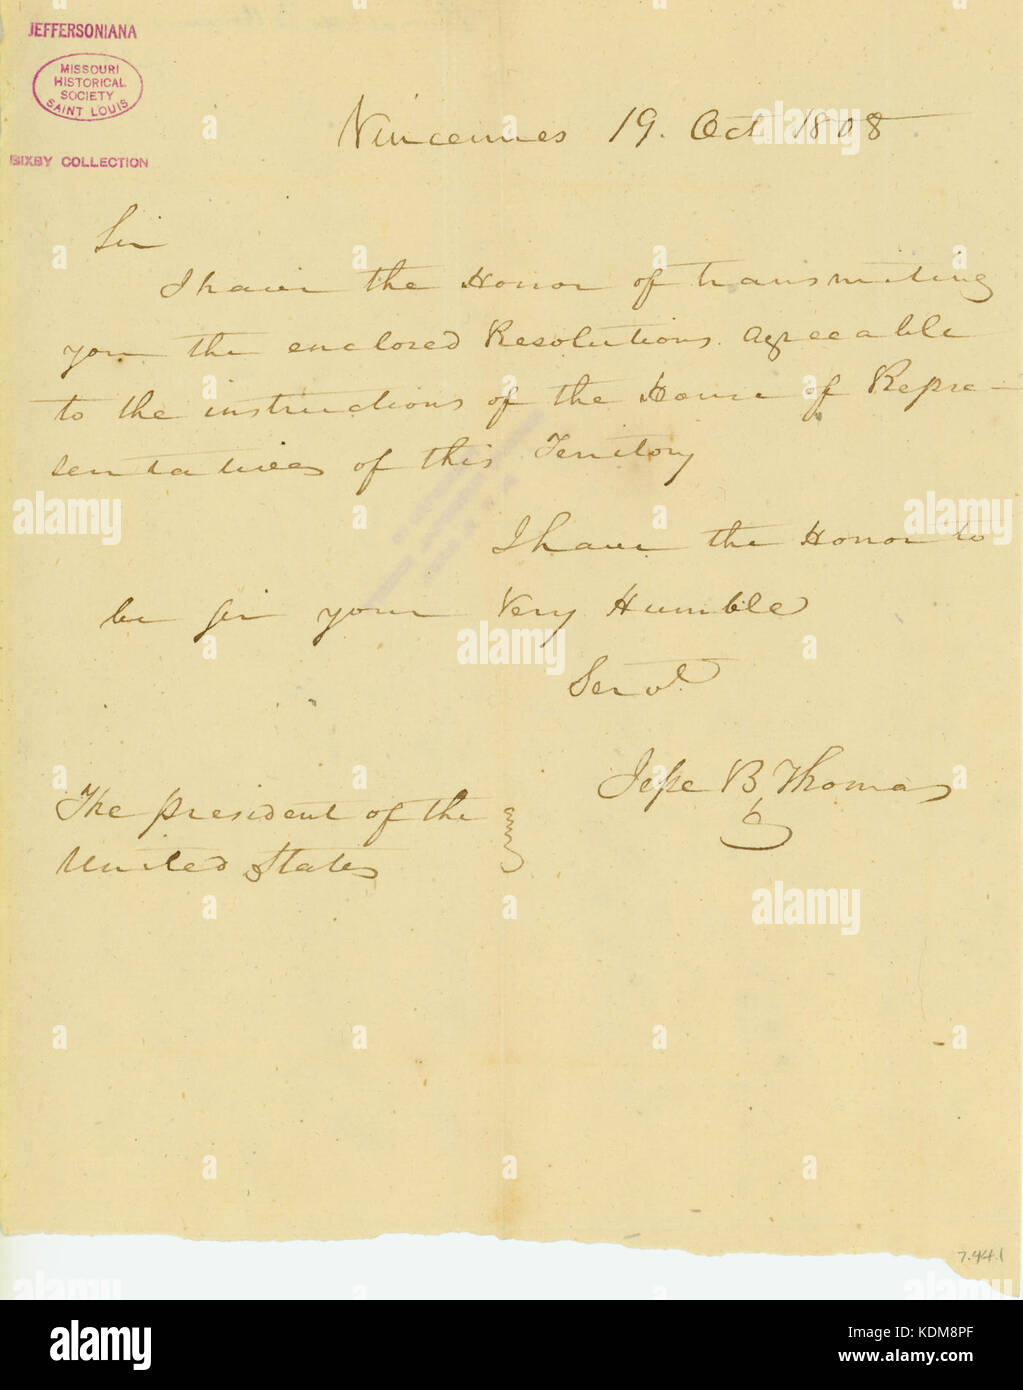 JEFFERSONIANA
MISSOURI
HISTORICAL
SOCIETY
SAINT LOUIS
BIXBY COLLECTION
Vincennes 19. Oct 1808
Sir
I have the Honor of transmiting
you the enclosed Resolutions agreeable
to the instructions of the House of Repre-
sentatives of this Territory
I have the Honor to
be Sir your Very Humble
Servt.
Jesse B Thomas
The president of the
United States
7.44.1
alamy
Image ID: KDM8PF
www.alamy.com